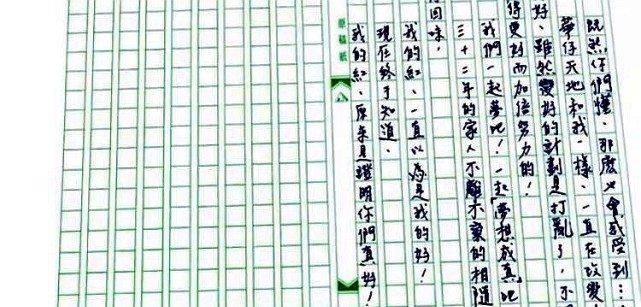 既然你們懂、那麼也會感受到…
華仔天地和我一樣、一直在改變
好、雖然變好的計劃是打亂了、不
得更好而加倍努力的!
我們一起夢吧!一起「夢想成真」吧
三十二年的家人不離不棄的相隨
回味,
我的紅、一直以為是我的好!
現在終于知道、
我的紅、原來是證明你們真好!
原稿紙